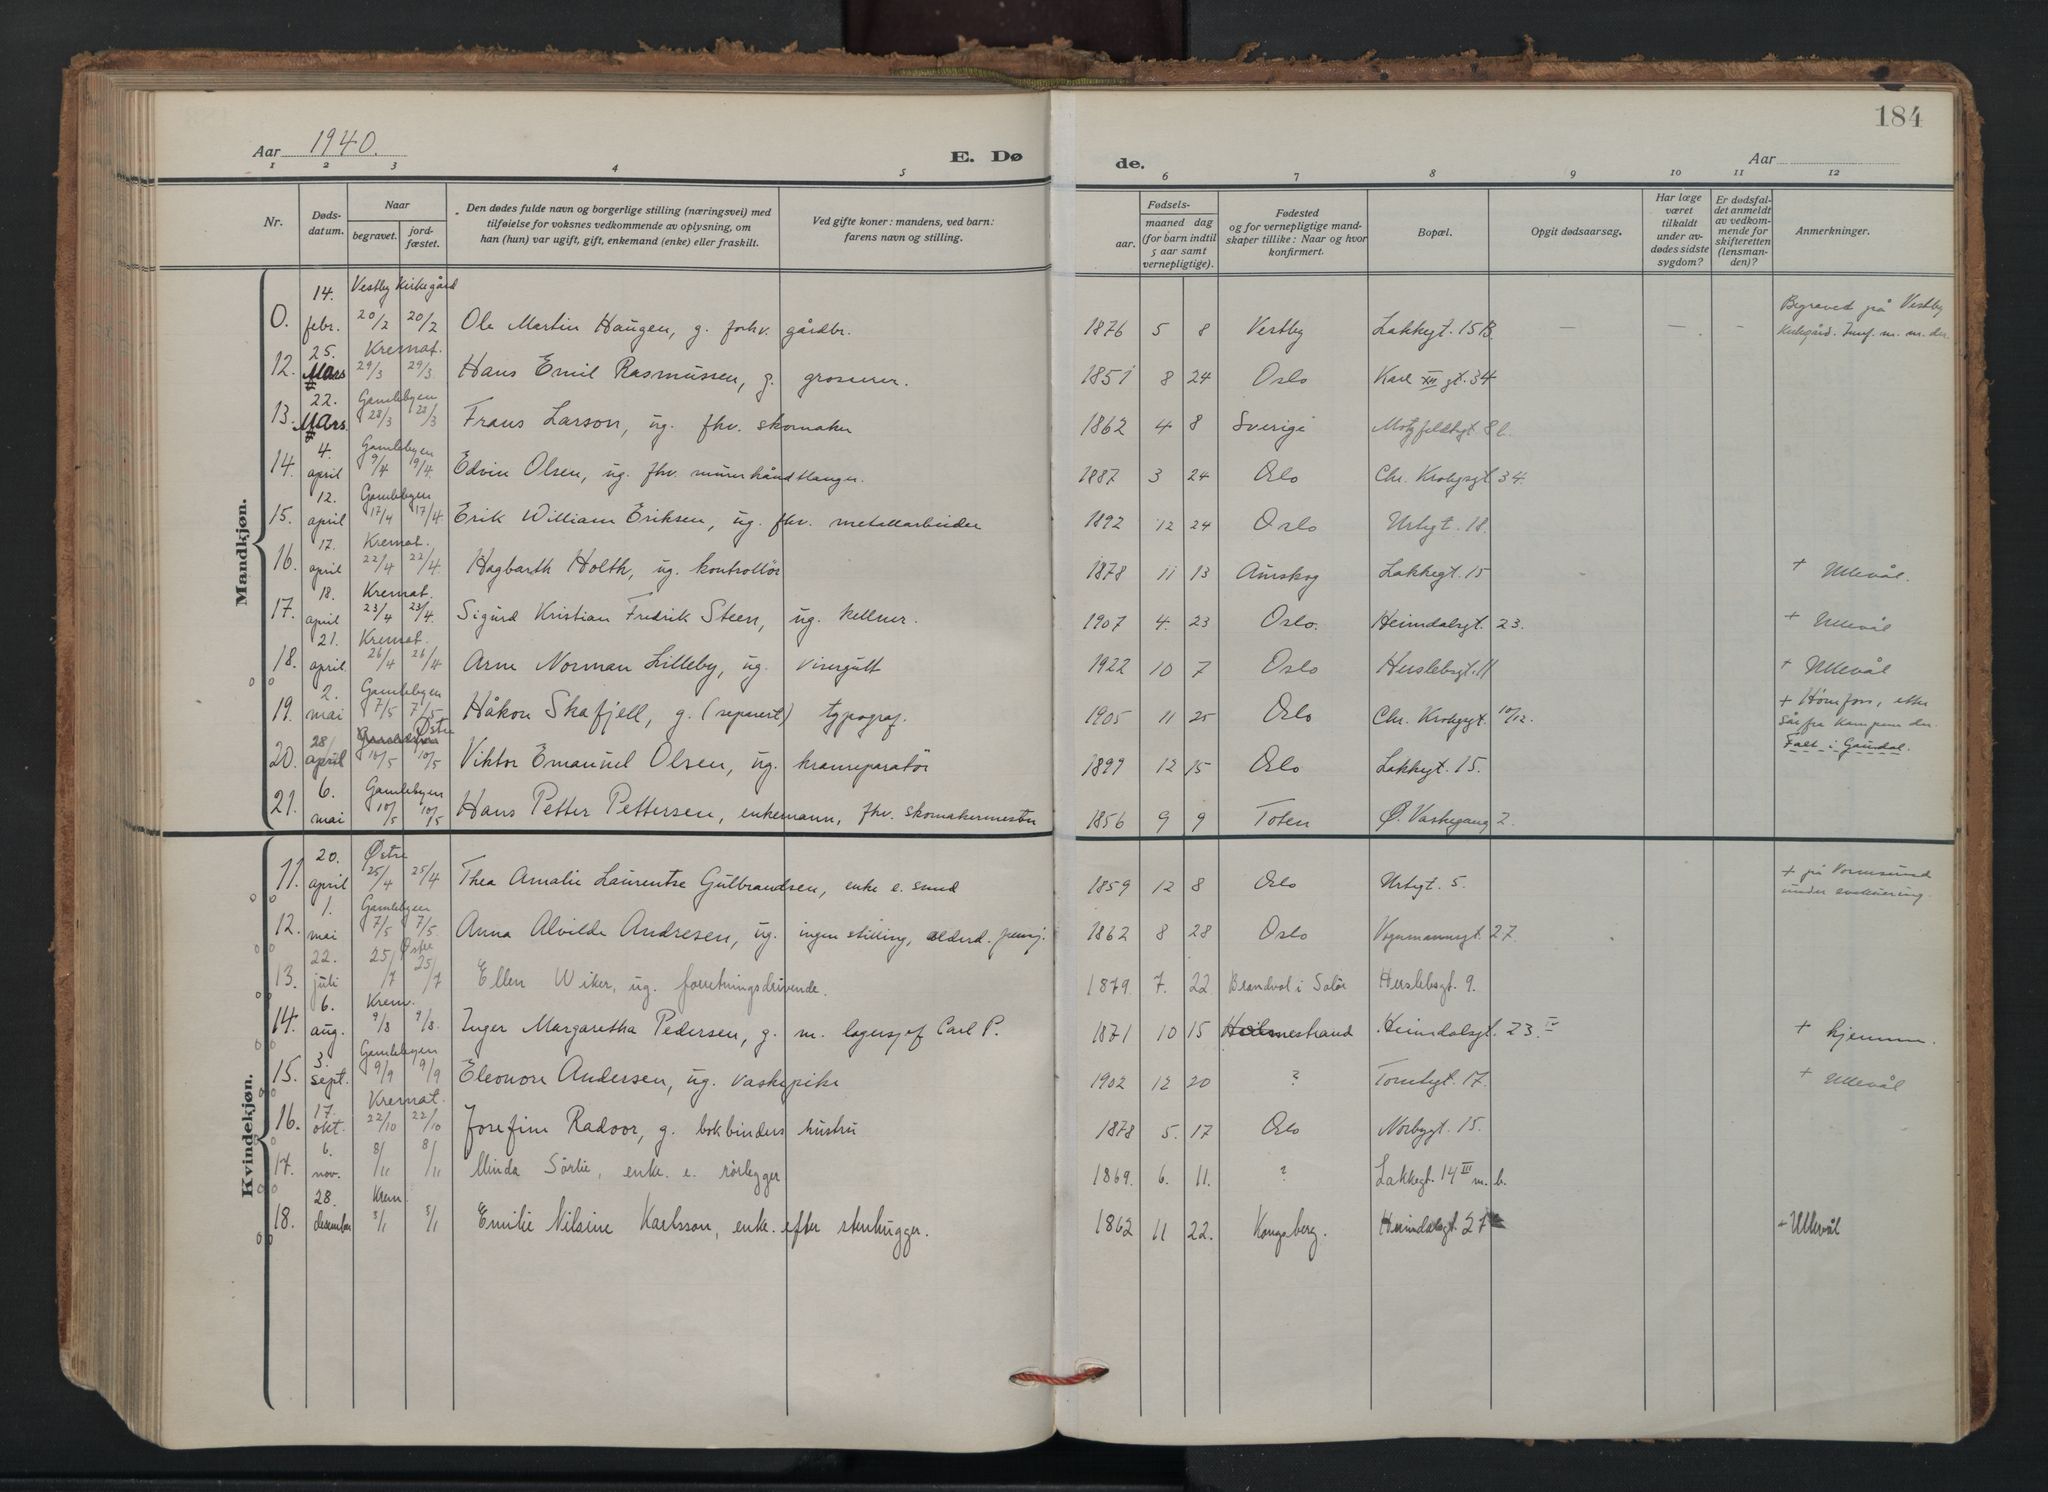 184
Aar 1940. E. Dø de. Aar
1 2 3 4 5 6 7 8 9 10 11 12
Nr. Dødsdatum. Naar begravet. jordfæstet. Den dødes fulde navn og borgerlige stilling (næringsvei) med tilføielse for voksnes vedkommende av oplysning, om han (hun) var ugift, gift, enkemand (enke) eller fraskilt. Ved gifte koner: mandens, ved barn: farens navn og stilling. Fødsels- aar. maaned dag (for barn indtil 5 aar samt vernepligtige). Fødested og for vernepligtige mandskaper tillike: Naar og hvor konfirmert. Bopæl. Opgit dødsaarsag. Har læge været tilkaldt under avdødes sidste sygdom? Er dødsfaldet anmeldt av vedkommende for skifteretten (lensmanden)? Anmerkninger.
Mandkjøn.
0. 14. febr. Vestby kirkegård 20/2 20/2 Ole Martin Haugen, g. forhv. gårdbr. 1876 5 8 Vestby Lakkegt. 15B. — — — Begravet på Vestby Kirkegård.
12. 25. Mars Kremat. 29/3 29/3 Hans Emil Rasmussen, g. grosserer. 1851 8 24 Oslo Karl XII gt. 34
13. 22. Mars Gamlebyen 28/3 28/3 Frans Larson, ug. fhv. skomaker 1862 4 8 Sverige Motzfeldtsgt. 8b.
14. 4. april Gamlebyen 9/4 9/4 Edvin Olsen, ug. fhv. murerhåndtlanger. 1887 3 24 Oslo Chr. Krohgsgt. 34.
15. 12. april Gamlebyen 17/4 17/4 Erik William Eriksen, ug. fhv. metallarbeider 1892 12 24 Oslo Urtegt. 18.
16. 17. april Kremat. 22/4 22/4. Hagbarth Holth, ug. kontrollör 1878 11 13 Aurskog Lakkegt. 15 + Ullevål.
17. 18. april Kremat. 23/4 23/4. Sigurd Kristian Fredrik Steen, ug. kellner. 1907 4. 23 Oslo. Heimdalsgt. 23. + Ullevål
18. 21. april Kremat. 26/4 26/4 Arne Norman Lilleby, ug. visergutt 1922 10 7 Oslo Herslebsgt. 11 + Ullevål
19. 2. mai Gamlebyen 7/5 7/5 Håkon Skafjell, g. (separert) typograf. 1905 11 25 Oslo Chr. Krohgsgt. 10/12. + Hønefoss, etter sår fra kampene der. Falt i Gaundal.
20. 28/ april Østre 10/5 10/5 Viktor Emanuel Olsen, ug. kranreparatør 1899 12 15 Oslo Lakkegt. 15.
21. 6. mai Gamlebyen 10/5 10/5 Hans Petter Pettersen, enkemann, fhv. skomakermester 1856 9 9 Toten Ø. Vaskegang 2.
Kvindekjøn.
11. 20. april Østre 25/4 25/4 Thea Amalie Laurentse Gulbrandsen, enke e. smed 1859 12 8 Oslo Urtegt. 5. + på Vormsund under evakuering.
12. 1. mai Gamlebyen 7/5 7/5 Anna Alvilde Andresen, ug. ingen stilling, alderd. pensj. 1862 8 28 Oslo Vognmannsgt. 27.
13. 22. juli Østre 25/7 25/7 Ellen Wiker, ug. forretningsdrivende. 1879. 7. 22. Brandval i Solør Herslebsgt. 9.
14. 6. aug. Krem. 9/8 9/8. Inger Margaretha Pedersen, g. m. lagersjef Carl P. 1871 10 15 Holmestrand Heimdalsgt. 23. + hjemme.
15. 3. sept. Gamlebyen 9/9 9/9 Eleonore Andersen, ug. vaskepike 1902 12 20 ? Tomtegt. 17. + Ullevål
16. 17. okt. Kremat. 22/10 22/10 Josefine Radoor, g. bokbinders hustru 1878 5. 17 Oslo Norbygt. 15.
17. 6. nov. 8/11 8/11 Minda Sörlie, enke e. rörlegger 1869. 6. 11. ? Lakkegt. 14 III m. b.
18. 28. desember Krem 3/1 3/1 Emilie Nilsine Karlsson, enke efter stenhugger. 1862 11 22. Kongsberg. Heimdalsgt 27 + Ullevål